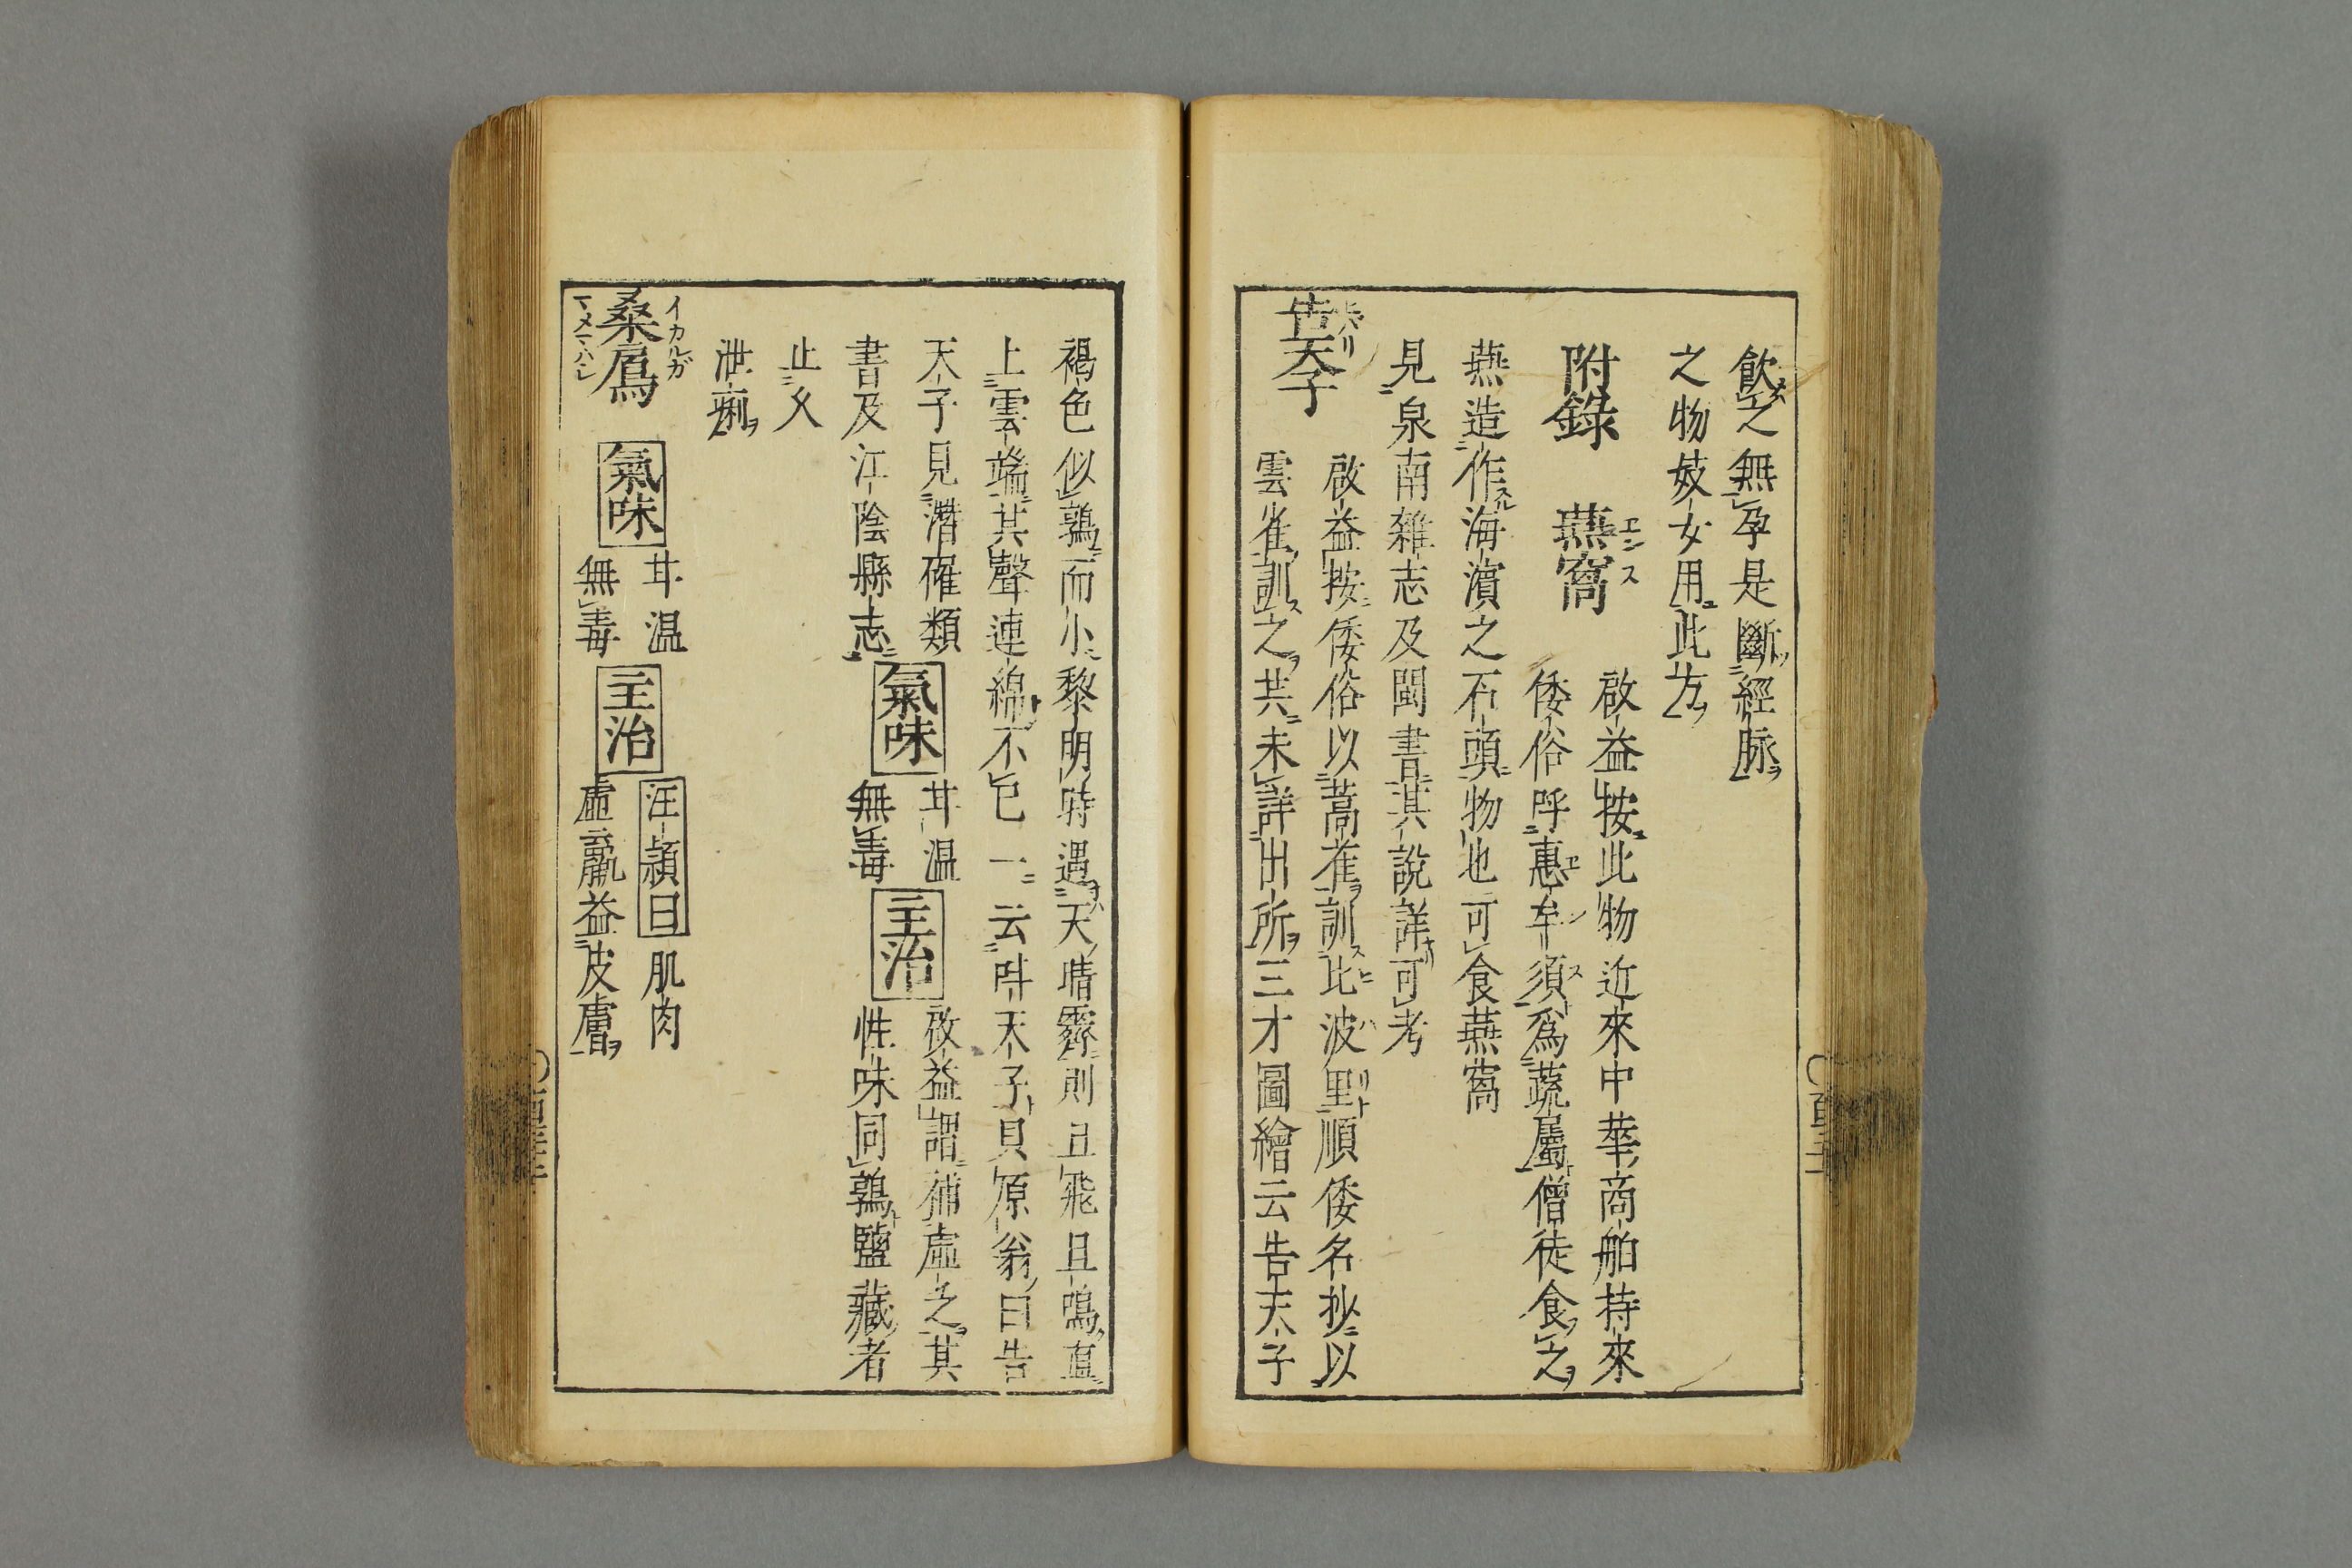 飲之無孕是斷經脉
之物妓女用此方
附錄 燕窩 啟益按此物近來中華商舶持來
倭俗呼惠牟須爲蔬屬僧徒食之
燕造作海濱之石頭物也可食燕窩
見泉南雜志及閩書其說詳可考
告天子 啟益按倭俗以蒿雀訓比波里順倭名抄以
雲雀訓之共未詳出所三才圖繪云告天子
褐色似鶉而小黎明時遇天晴霽則且飛且鳴直
上雲端其聲連綿不已一云叫天子貝原翁曰告
天子見潛確類
書及江陰縣志 氣味 甘温
無毒 主治 啟益謂補虛之其
性味同鶉鹽藏者
止久
泄痢
イカルガ
桑鳲
マメマハシ
氣味 甘温
無毒 主治 汪頴曰肌肉
虛羸益皮膚